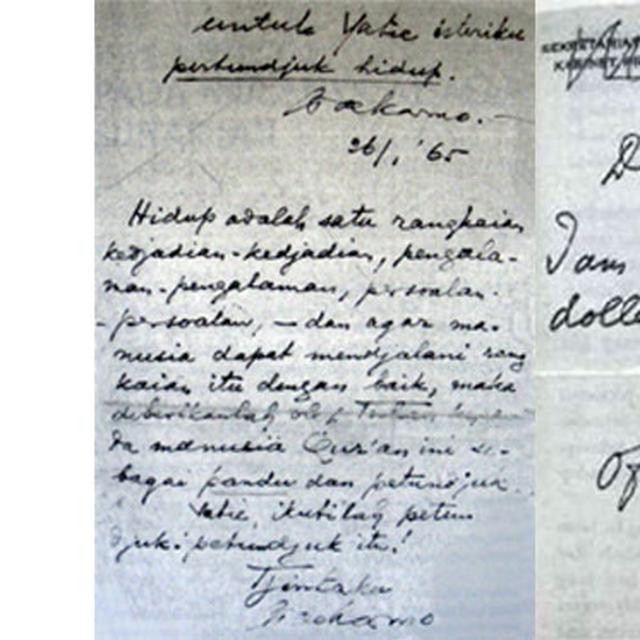 untuk Yatie isteriku
pertundjuk hidup.
Soekarno.-
26/1 '65
Hidup adalah satu rangkaian
kedjadian-kedjadian, pengala-
man-pengalaman, persoalan-
-persoalan, – dan agar ma-
nusia dapat mendjalani rang
kaian itu dengan baik, maka
diberikanlah oleh Tuhan kepa-
da manusia Qur'an ini se-
bagai pandu dan petundjuk.
Yatie, ikutilah petun
djuk-petundjuk itu!
Tjintaku
Soekarno
SEKRETARIAT
D
I am
dolla
Of